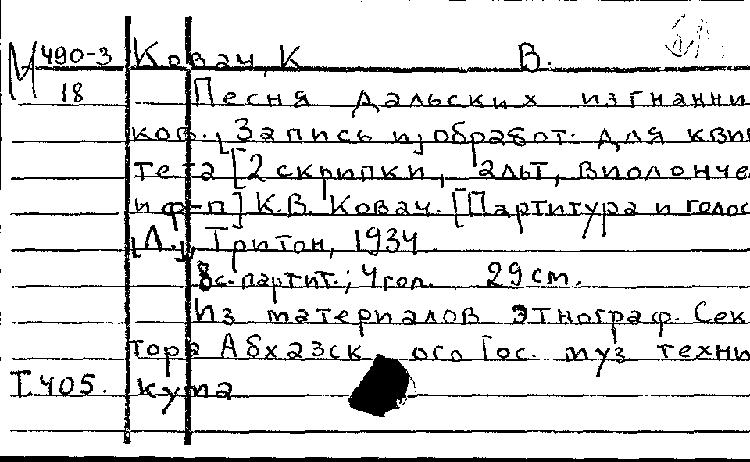 М 490-3 Ковач, К В.
18 Песня дальских изгнанни
ков. Запись и обработ. для квин
тета [2 скрипки, альт, виолонче
и ф-п] К.В. Ковач. [Партитура и голос
[Л.], Тритон, 1934.
8с. партит.; 4 гол. 29 см.
Из материалов этнограф. Сек
тора Абхазск ого Гос. муз техни
Т.405. кума